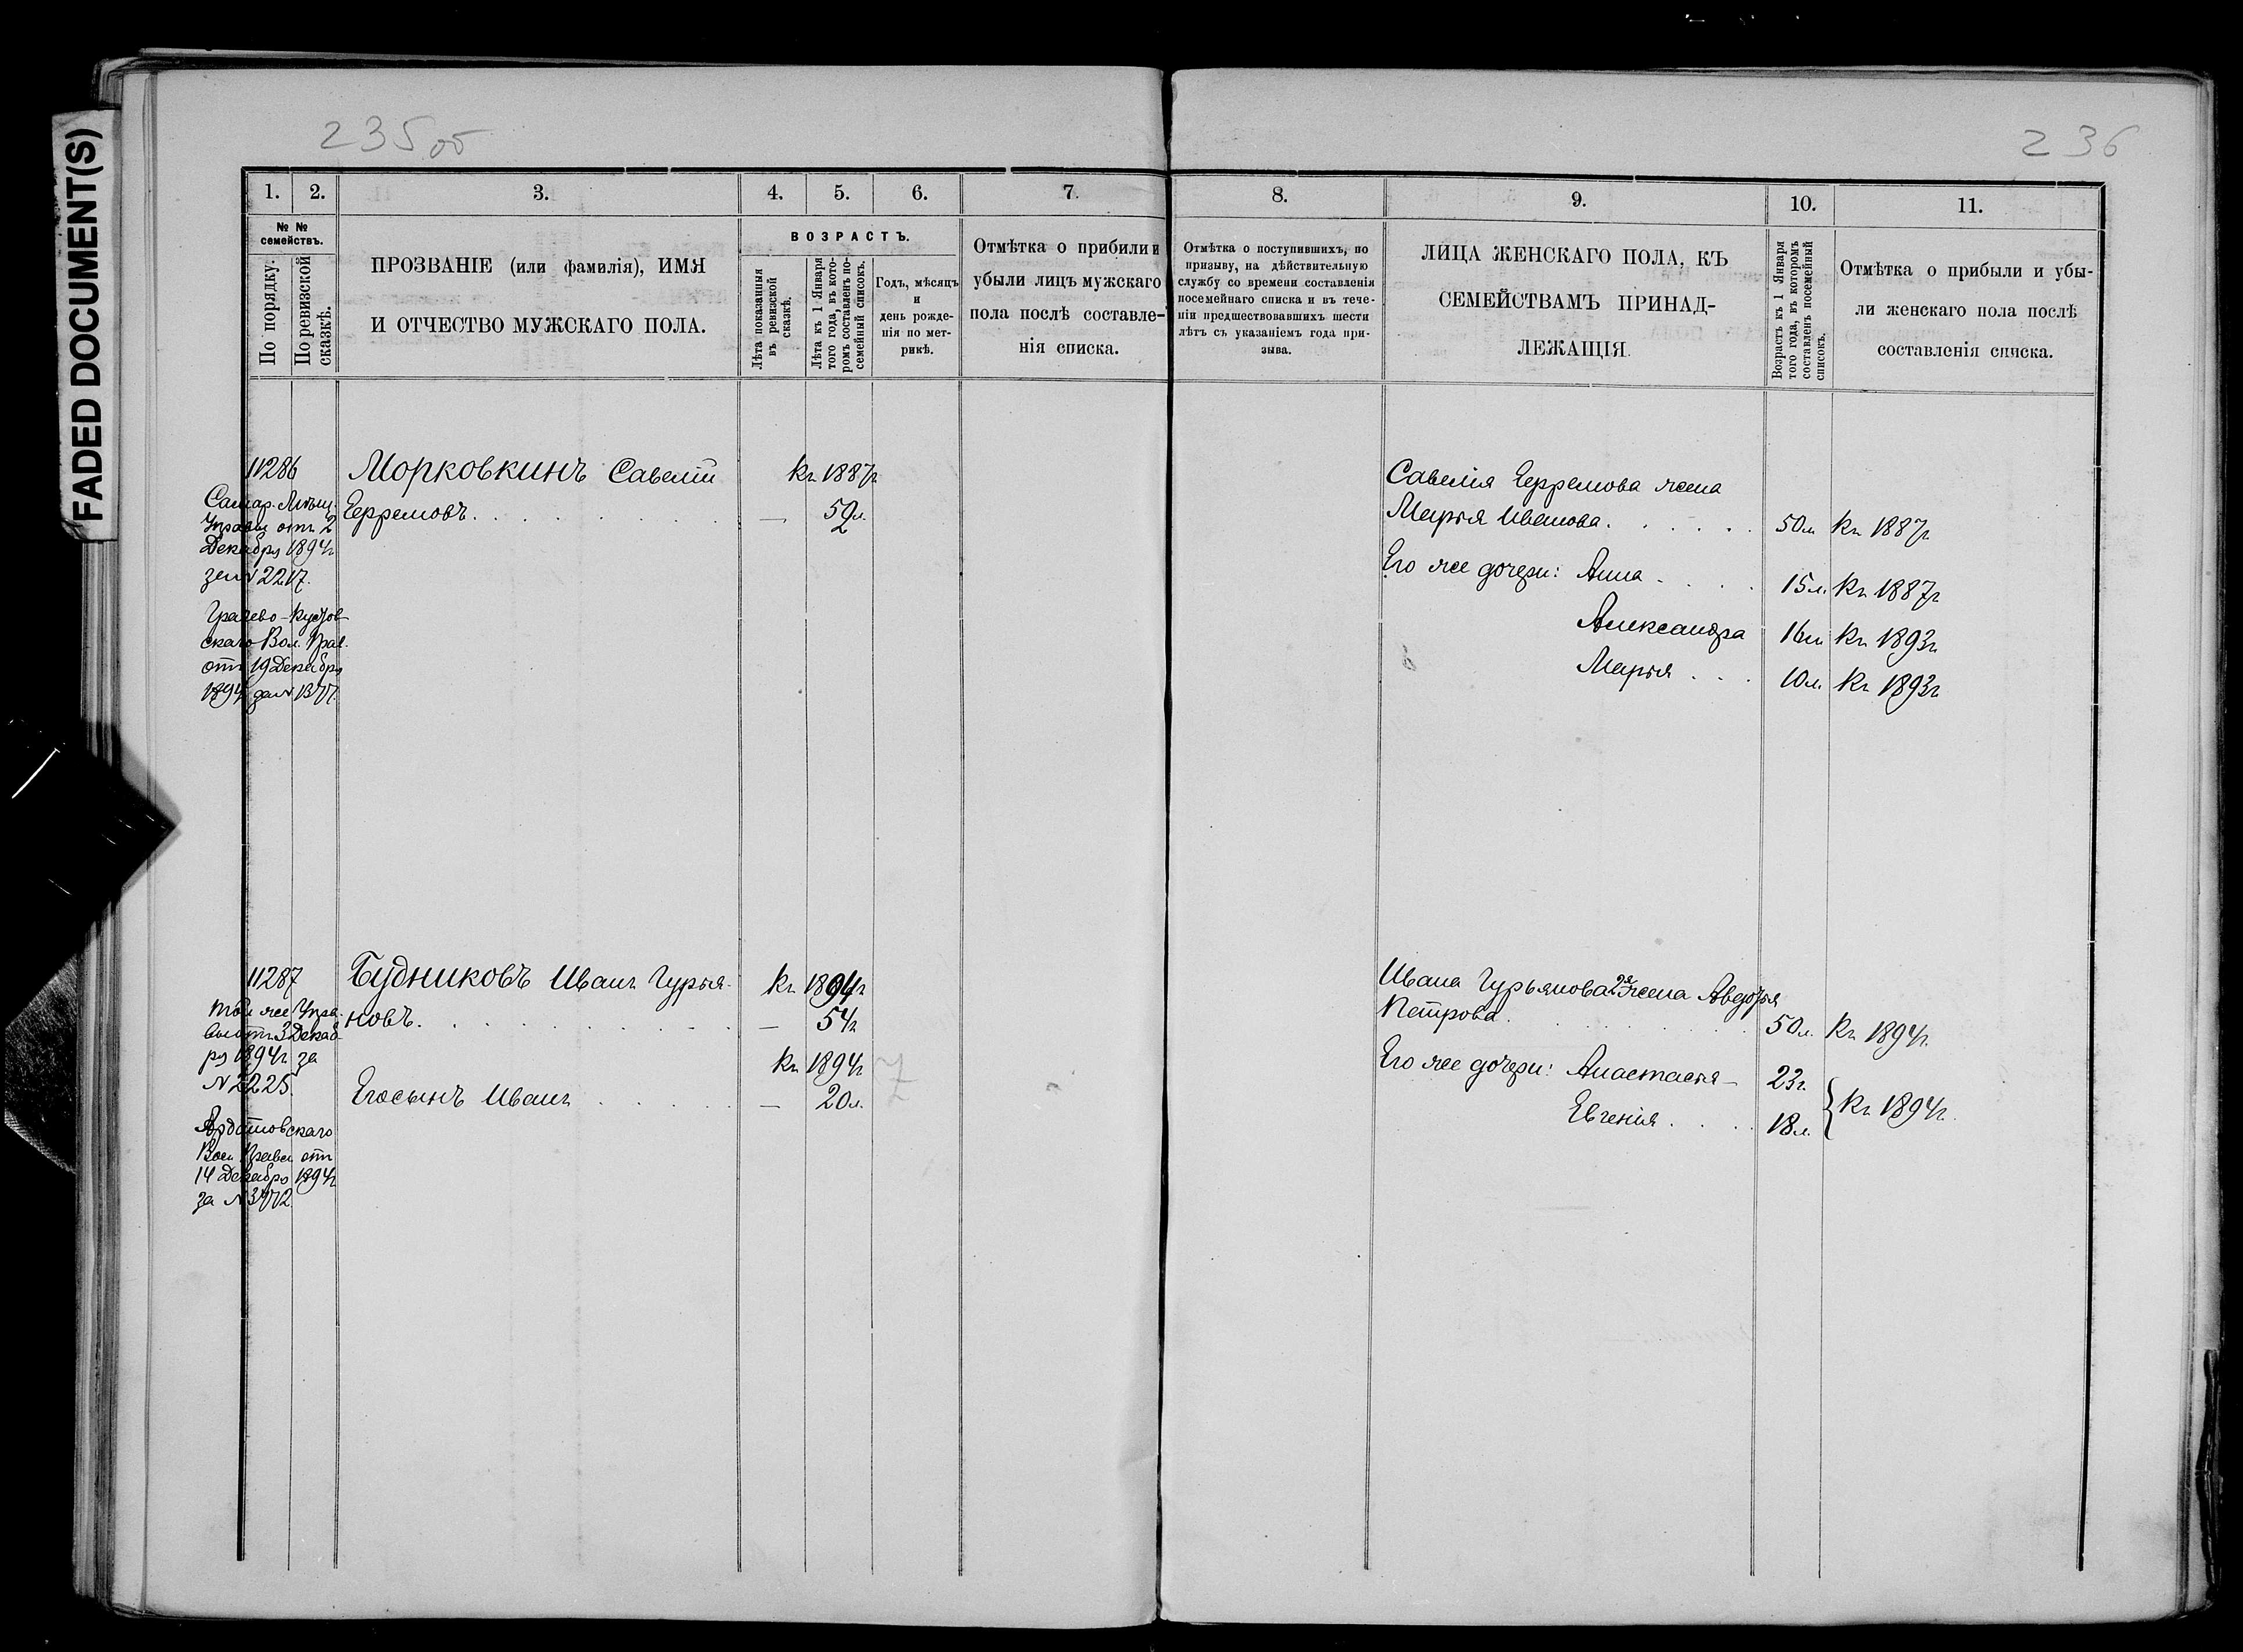 FADED DOCUMENT(S)
235 об
236
1. 2. 3. 4. 5. 6. 7. 8. 9. 10. 11.
№ №
семействъ.
По порядку.
По ревизской
сказкѣ.
ПРОЗВАНІЕ (или фамилія), ИМЯ
И ОТЧЕСТВО МУЖСКАГО ПОЛА.
ВОЗРАСТЪ.
Лѣта показанныя
въ ревизской
сказкѣ.
Лѣта къ 1 Января
того года, въ кото-
ромъ составленъ по-
семейный списокъ.
Годъ, мѣсяцъ
и
день рожде-
нія по мет-
рикѣ.
Отмѣтка о прибыли и
убыли лицъ мужскаго
пола послѣ составле-
нія списка.
Отмѣтка о поступившихъ, по
призыву, на дѣйствительную
службу со времени составленія
посемейнаго списка и въ тече-
ніи предшествовавшихъ шести
лѣтъ съ указаніемъ года при-
зыва.
ЛИЦА ЖЕНСКАГО ПОЛА, КЪ
СЕМЕЙСТВАМЪ ПРИНАД-
ЛЕЖАЩІЯ.
Возрастъ къ 1 Января
того года, въ которомъ
составленъ посемейный
списокъ.
Отмѣтка о прибыли и убы-
ли женскаго пола послѣ
составленія списка.
11286
Самар. Мѣщ.
Управы отъ 2
Декабря 1894г
за № 2217.
Грачево-Кустов-
скаго Вол. Прав.
отъ 19 Декабря
1894г за №
Морковкинъ Савелій
Ефремовъ
къ 1887г
— 52л.
Савелія Ефремова жена
Марья Иванова 50л. къ 1887г
Его же дочери: Анна 15л. къ 1887г
Александра 16л. къ 1893г
Марья 10л. къ 1893г
11287
Той же Упра-
вы отъ 3 Декаб-
ря 1894г за
№ 2225.
Ардатовскаго
Вол. Правл. отъ
14 Декабря 1894г
за №
Будниковъ Иванъ Гурья-
новъ
къ 1894г
— 54г
къ 1894г
Его сынъ Иванъ — 20л.
7
Ивана Гурьянова 2я жена Авдотья
Петрова 50л. къ 1894г.
Его же дочери: Анастасья 23г.
Евгенія 18л.
} къ 1894г.